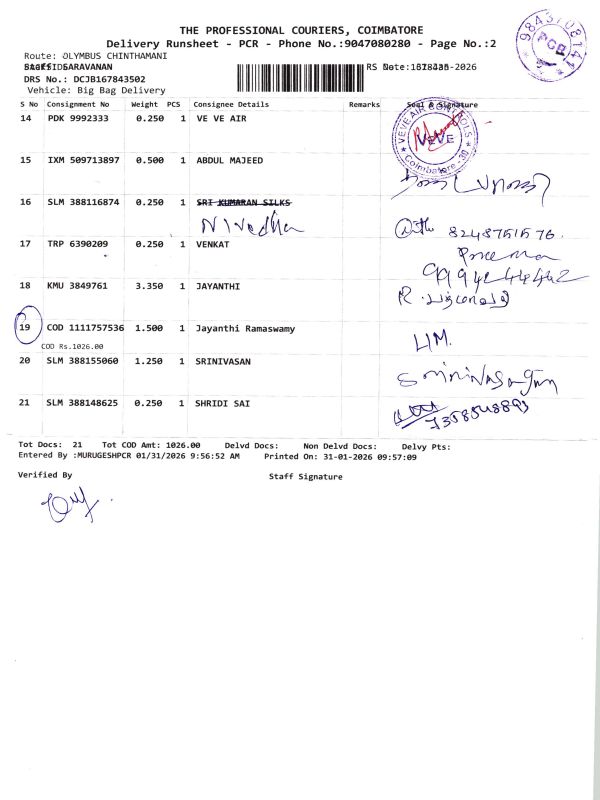 THE PROFESSIONAL COURIERS, COIMBATORE
Delivery Runsheet - PCR - Phone No.:9047080280 - Page No.:2
Route: OLYMBUS CHINTHAMANI
SARAVANAN
DRS No.: DCJB167843502
Vehicle: Big Bag Delivery
S No Consignment No Weight PCS Consignee Details Remarks Seal & Signature
14 PDK 9992333 0.250 1 VE VE AIR
VEVE AIR CONTROLS
VEVE
Coimbatore - 30
15 IXM 509713897 0.500 1 ABDUL MAJEED
16 SLM 388116874 0.250 1 SRI KUMARAN SILKS
Nivedha
17 TRP 6390209 0.250 1 VENKAT
18 KMU 3849761 3.350 1 JAYANTHI
19 COD 1111757536 1.500 1 Jayanthi Ramaswamy
COD Rs.1026.00
20 SLM 388155060 1.250 1 SRINIVASAN
21 SLM 388148625 0.250 1 SHRIDI SAI
Tot Docs: 21 Tot COD Amt: 1026.00 Delvd Docs: Non Delvd Docs: Delvy Pts:
Entered By :MURUGESHPCR 01/31/2026 9:56:52 AM Printed On: 31-01-2026 09:57:09
Verified By Staff Signature